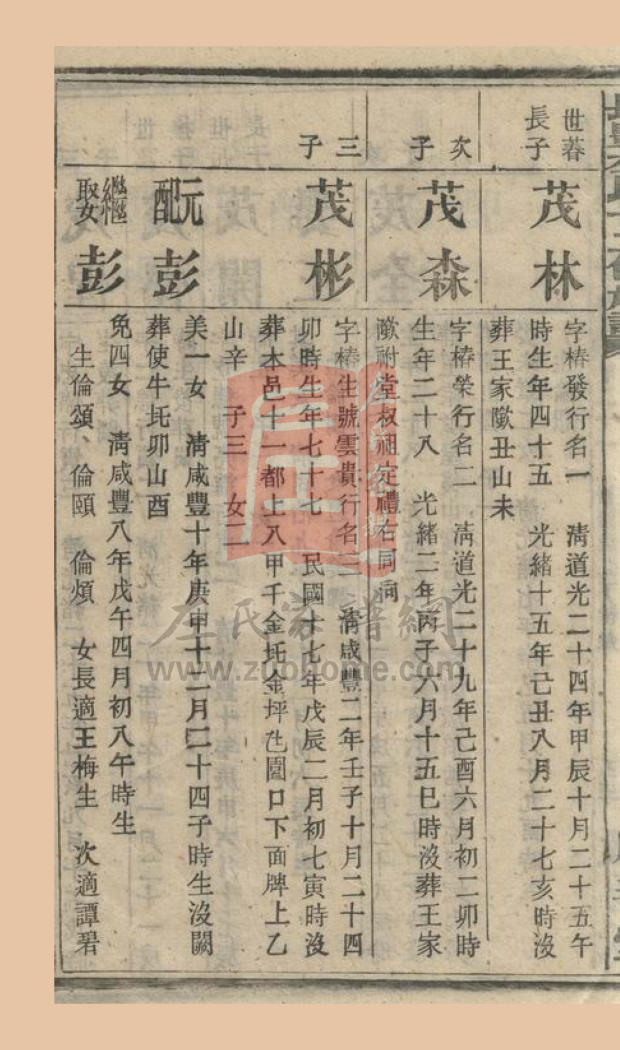 世蓉
長子
茂林
字椿發行名一　清道光二十四年甲辰十月二十五午
時生年四十五　光緒十五年己丑八月二十七亥時沒
葬王家歟丑山未
次子
茂森
字椿榮行名二　清道光二十九年己酉六月初二卯時
生年二十八　光緒二年丙子六月十五巳時沒葬王家
歟祔堂叔祖定禮右同
三子
茂彬
字椿生號雲貴行名三　清咸豐二年壬子十月二十四
卯時生年七十七　民國十七年戊辰二月初七寅時沒
葬本邑十一都上八甲千金坵金坪屯園口下面牌上乙
山辛　子三　女二
元配
彭
美一女　清咸豐十年庚申十二月二十四子時生沒闕
葬使牛坵卯山酉
繼娶
彭
免四女　清咸豐八年戊午四月初八午時生
生倫頌、倫頤　倫煩　女長適王梅生　次適譚碧
左氏家譜網
www.zuohome.com